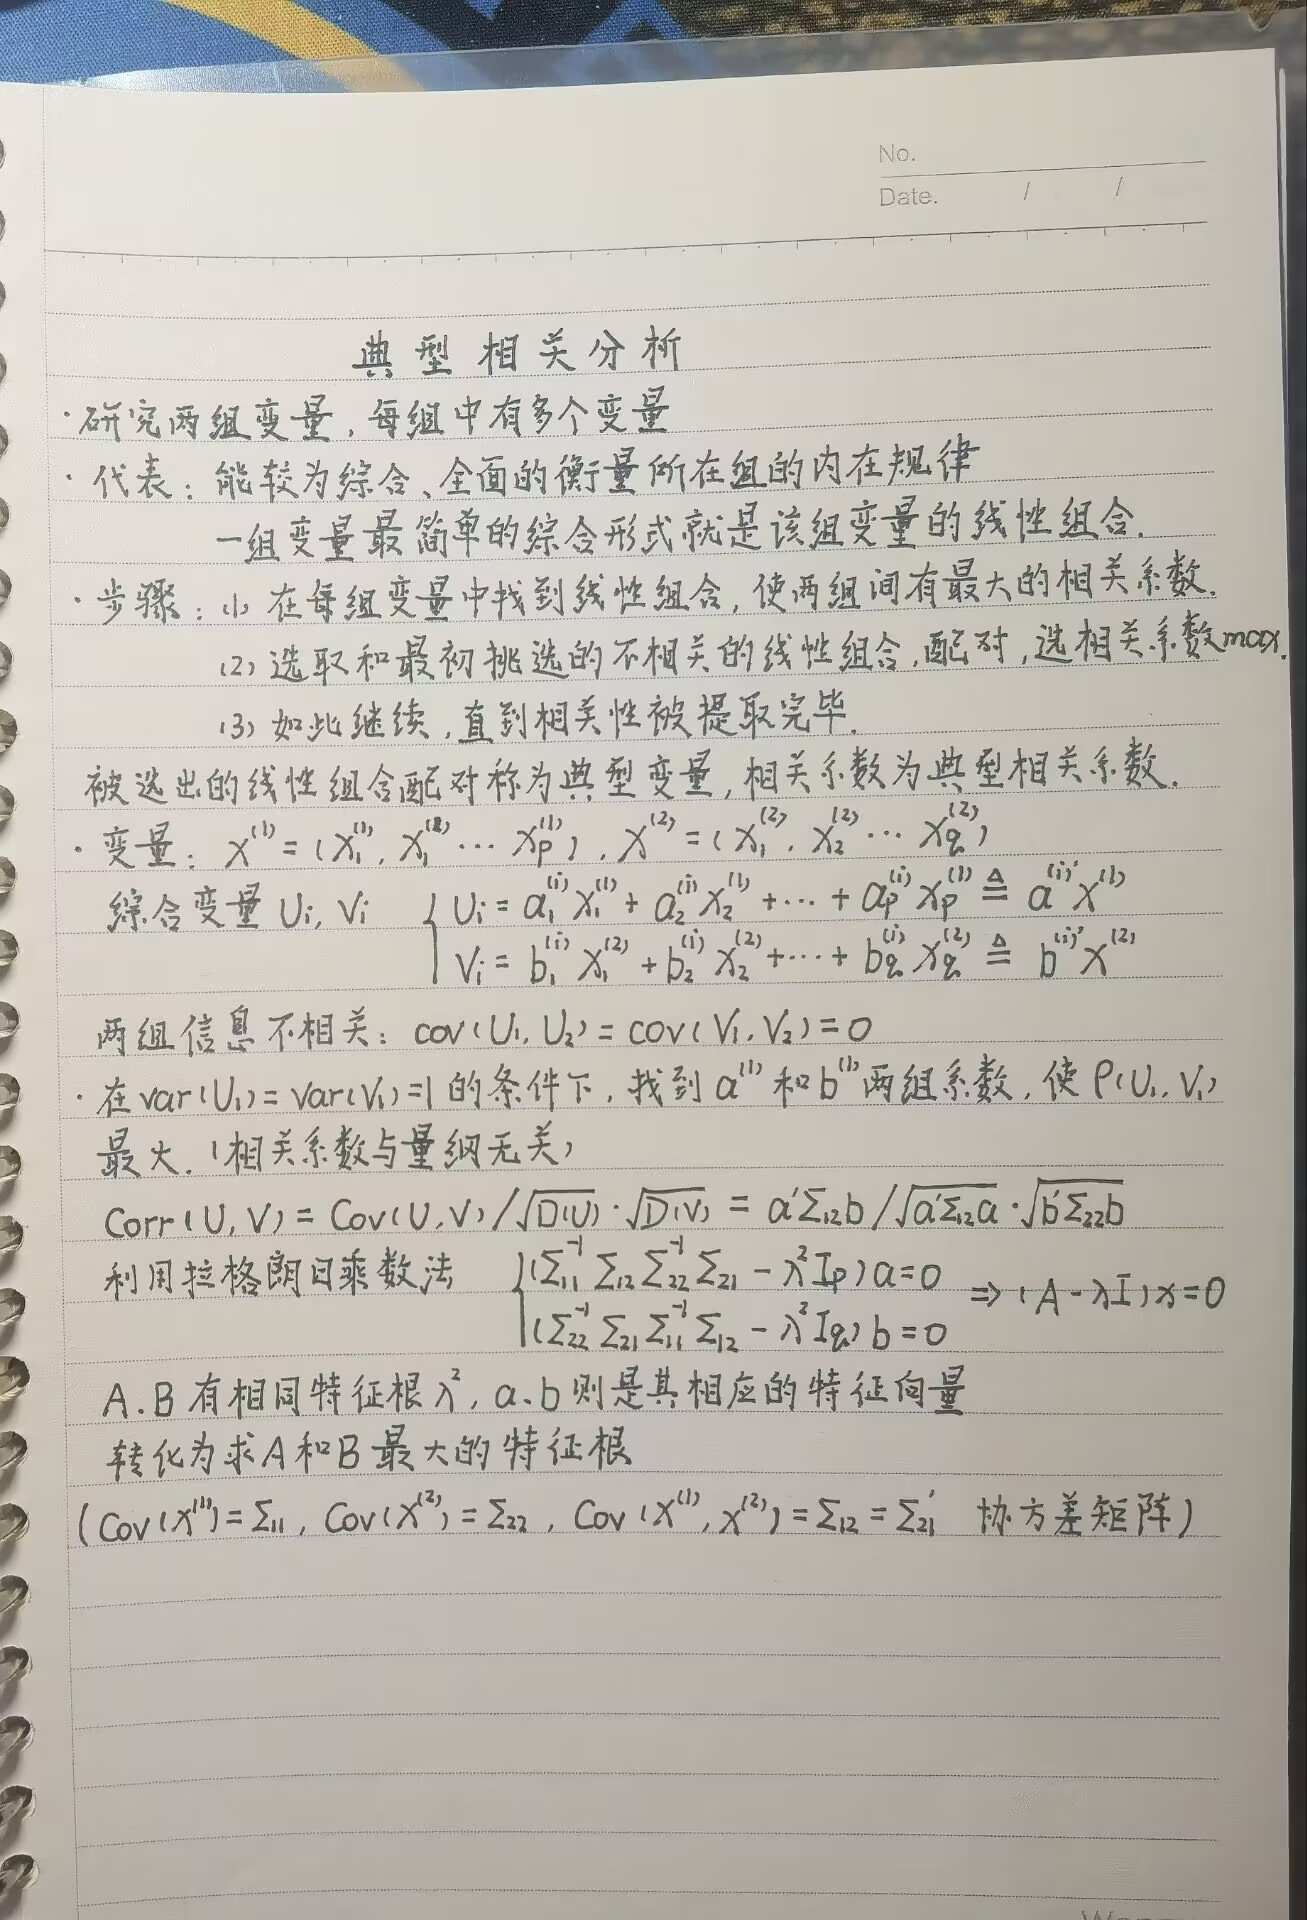 No.
Date. / /
典型相关分析
·研究两组变量，每组中有多个变量
·代表：能较为综合、全面的衡量所在组的内在规律
一组变量最简单的综合形式就是该组变量的线性组合.
·步骤：(1) 在每组变量中找到线性组合，使两组间有最大的相关系数.
(2) 选取和最初挑选的不相关的线性组合，配对，选相关系数max.
(3) 如此继续，直到相关性被提取完毕.
被选出的线性组合配对称为典型变量，相关系数为典型相关系数.
·变量：X⁽¹⁾=(X₁⁽¹⁾, X₁⁽²⁾ ⋯ Xp⁽¹⁾), X⁽²⁾=(X₁⁽²⁾, X₂⁽²⁾ ⋯ Xq⁽²⁾)
综合变量 Ui, Vi { Ui = a₁⁽ⁱ⁾X₁⁽¹⁾ + a₂⁽ⁱ⁾X₂⁽¹⁾ + ⋯ + ap⁽ⁱ⁾Xp⁽¹⁾ ≜ a⁽ⁱ⁾'X⁽¹⁾
Vi = b₁⁽ⁱ⁾X₁⁽²⁾ + b₂⁽ⁱ⁾X₂⁽²⁾ + ⋯ + bq⁽ⁱ⁾Xq⁽²⁾ ≜ b⁽ⁱ⁾'X⁽²⁾
两组信息不相关：cov(U₁, U₂) = cov(V₁, V₂) = 0
·在var(U₁)=var(V₁)=1的条件下，找到a⁽¹⁾和b⁽¹⁾两组系数，使ρ(U₁, V₁)
最大.(相关系数与量纲无关)
Corr(U, V) = Cov(U, V)/√D(U)·√D(V) = a'Σ₁₂b/√a'Σ₁₂a·√b'Σ₂₂b
利用拉格朗日乘数法 { (Σ₁₁⁻¹Σ₁₂Σ₂₂⁻¹Σ₂₁ - λ²Ip)a=0 ⇒ (A-λI)x=0
(Σ₂₂⁻¹Σ₂₁Σ₁₁⁻¹Σ₁₂ - λ²Iq)b=0
A.B有相同特征根λ², a.b则是其相应的特征向量
转化为求A和B最大的特征根
(Cov(X⁽¹⁾)=Σ₁₁, Cov(X⁽²⁾)=Σ₂₂, Cov(X⁽¹⁾, X⁽²⁾)=Σ₁₂=Σ₂₁' 协方差矩阵)